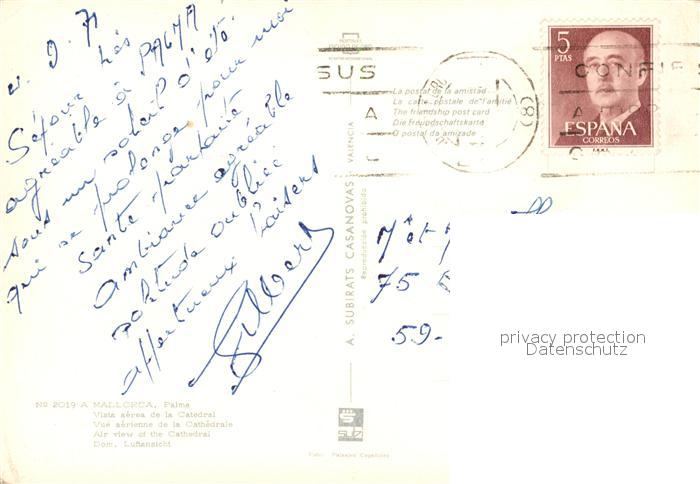 9. 71
Séjour très
agréable à PALMA
sous un soleil d'été
qui se prolonge pour moi
Santé parfaite
ambiance agréable
solitude oubliée
affectueux baisers
Gilbert
La postal de la amistad
La carte postale de l'amitié
The friendship post card
Die Freundschaftskarte
O postal da amizade
A. SUBIRATS CASANOVAS VALENCIA
Reproducción prohibida
SUS
(8)
CONFIE
5
PTAS
ESPAÑA
CORREOS
F.N.M.T.
75
59-
privacy protection
Datenschutz
Nº 2019 A MALLORCA, Palma
Vista aérea de la Catedral
Vue aérienne de la Cathédrale
Air view of the Cathedral
Dom. Luftansicht
Foto: Paisajes Españoles